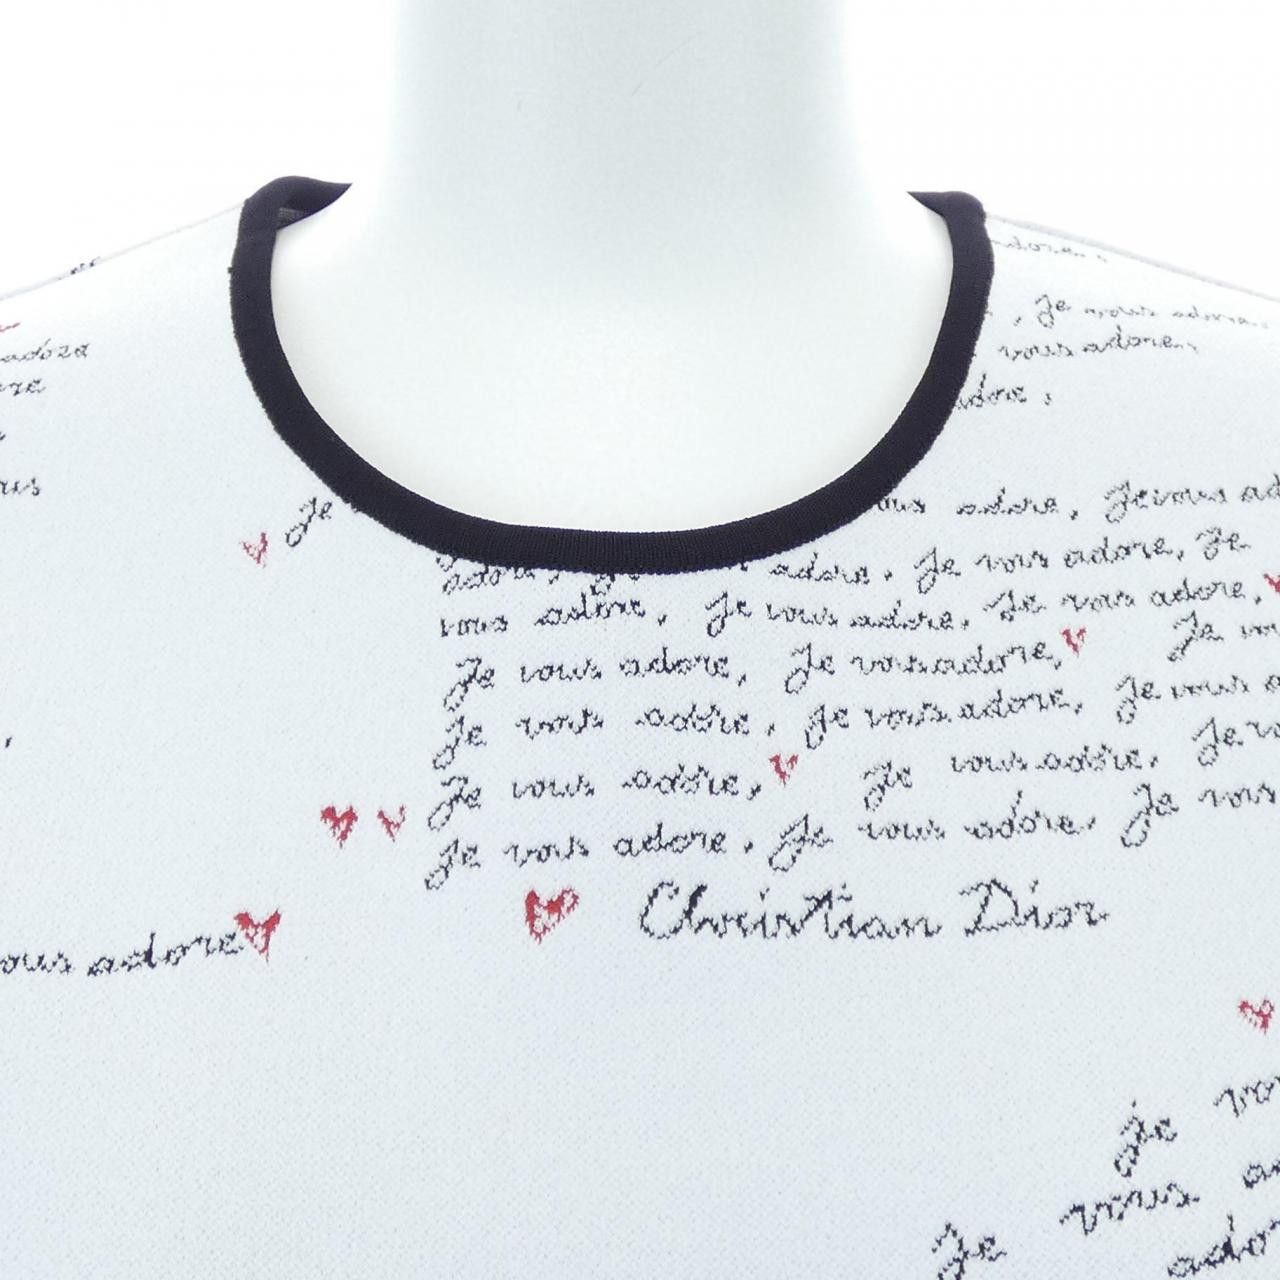 adore,
, Je vous adore,
adore
vous adore,
adore,
Je vous adore, Je vous
adore, Je adore, Je vous adore, Je
vous adore, Je vous adore, Je vous adore,
Je vous adore, Je vous adore, Je
Je vous adore, Je vous adore, Je vous
Je vous adore, Je vous adore, Je
Je vous adore, Je vous adore, Je vous
Christian Dior
vous adore
Je
Je vous
adore